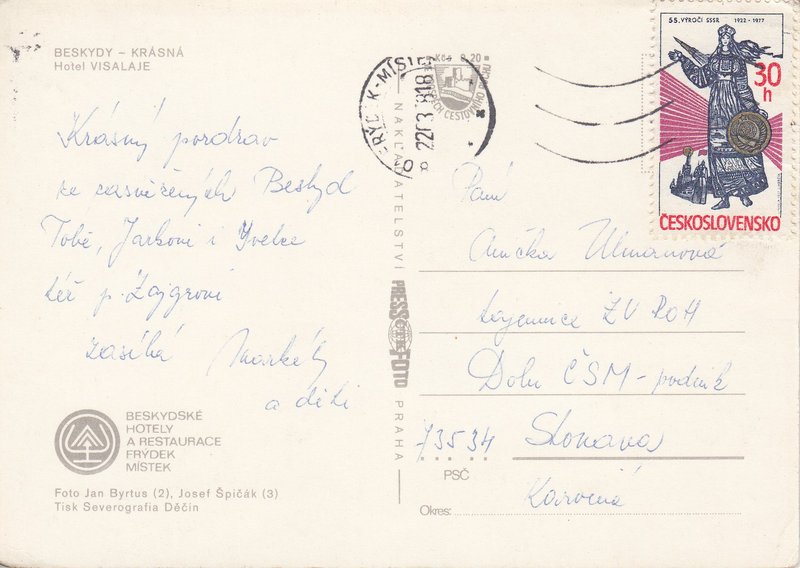 BESKYDY – KRÁSNÁ
Hotel VISALAJE
Krásný pozdrav
ze zasněžených Beskyd
Tobě, Jarkovi i Yvetce
též p. Zajgrovi
zasílá
a děti
BESKYDSKÉ
HOTELY
A RESTAURACE
FRÝDEK
MÍSTEK
Foto Jan Byrtus (2), Josef Špičák (3)
Tisk Severografia Děčín
NAKLADATELSTVÍ
PRESSFOTO
PRAHA
Kčs 0,20
55. VÝROČÍ SSSR 1922 - 1977
30
h
ČESKOSLOVENSKO
Paní
Anička Ulmanová
tajemnice ZV ROH
Dolu ČSM - podnik
73534 Stonava
PSČ
Karviná
Okres: